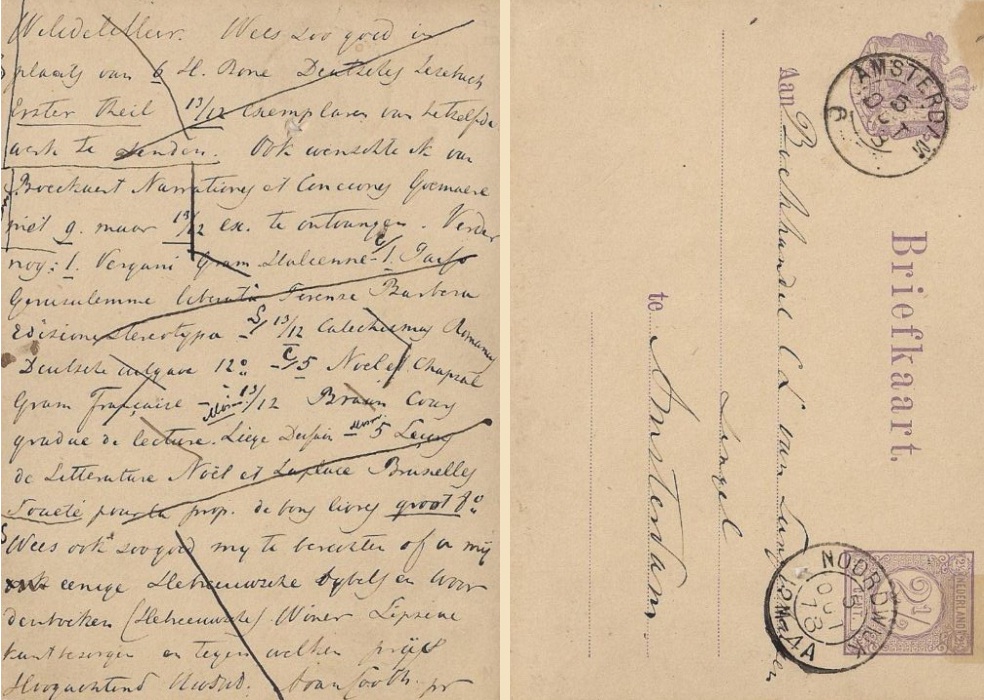 WelEdele Heer. Wees zoo goed in
plaats van 6 H. Bone Deutsches Lesebuch
Erster Theil 13/12 Exemplaren van hetzelfde
werk te zenden. Ook wenschte ik van
Boeckaert Narrationes et Conciones Goemaere
niet 9. maar 13/12 ex. te ontvangen. Verder
nog: 1. Vergani Gram Italienne - 1. Tasso
Gerusalemme liberata Firenze Barbera
Edizione stereotypa - 13/12 Catechismus Romanus
Deutsche Ausgave 12o - 5 Noel et Chapsal
Gram Française - 13/12 Braun Cours
gradué de lecture. Liège Dessain - 5 Leçons
de Litterature Noël et Laplace Bruxelles
Société pour la prop. de bons livres groot 8o
Wees ook zoo goed my te berichten of u mij
eenige Hebreeuwsche bybels en woor
denboeken (Hebreeuwsche) Winer Lipsiae
kunt bezorgen en tegen welken prijs
Hoogachtend
Briefkaart.
Aan Boekhandel C L van Lang
Singel
te Amsterdam.
AMSTERDAM
5
OCT
6
NEDERLAND
2½
CENT
NOORDWIJK
5
OCT
78
12M-4A